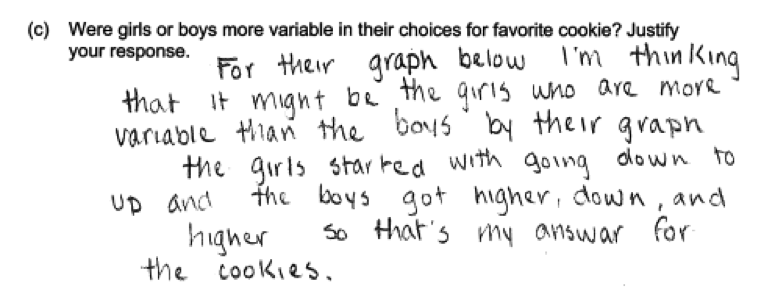 (c) Were girls or boys more variable in their choices for favorite cookie? Justify
your response.
For their graph below I'm thinking
that it might be the girls who are more
variable than the boys by their graph
the girls started with going down to
up and the boys got higher, down, and
higher so that's my answar for
the cookies.